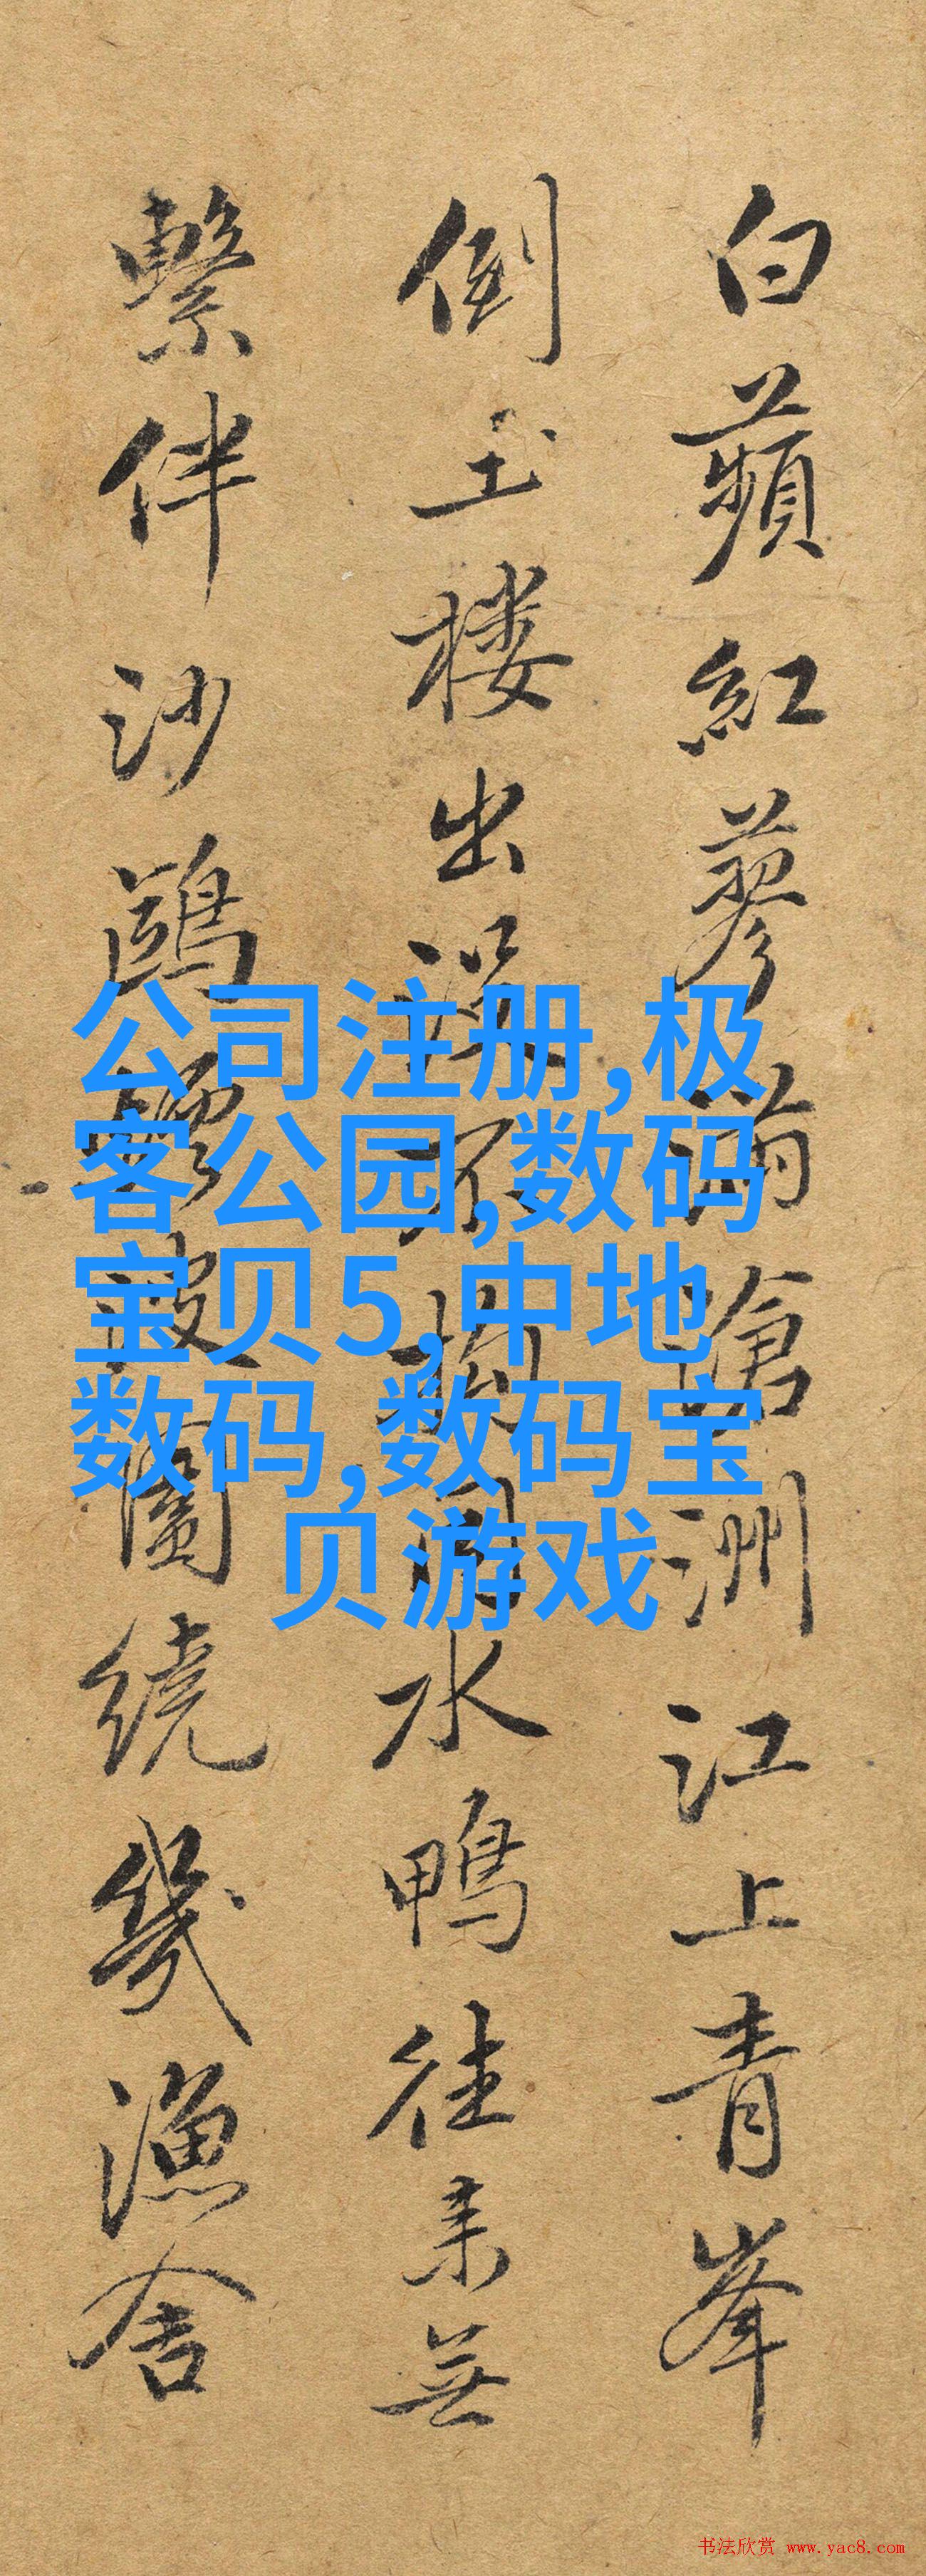 白蘋紅蓼滿滄洲江上青峯
倒玉楼出没不拘同水鴨往来無
繫伴沙鷗 波圍繞幾漁舍
公司注册,极
客公园,数码
宝贝5,中地
数码,数码宝
贝游戏
书法欣赏 www.yac8.com